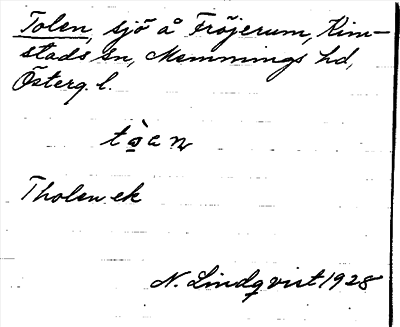 Tolen, sjö å Fröjerum, Kim-
stads sn, Memmings hd,
Österg. l.
tò̱an
Tholen ek
N. Lindqvist 1928